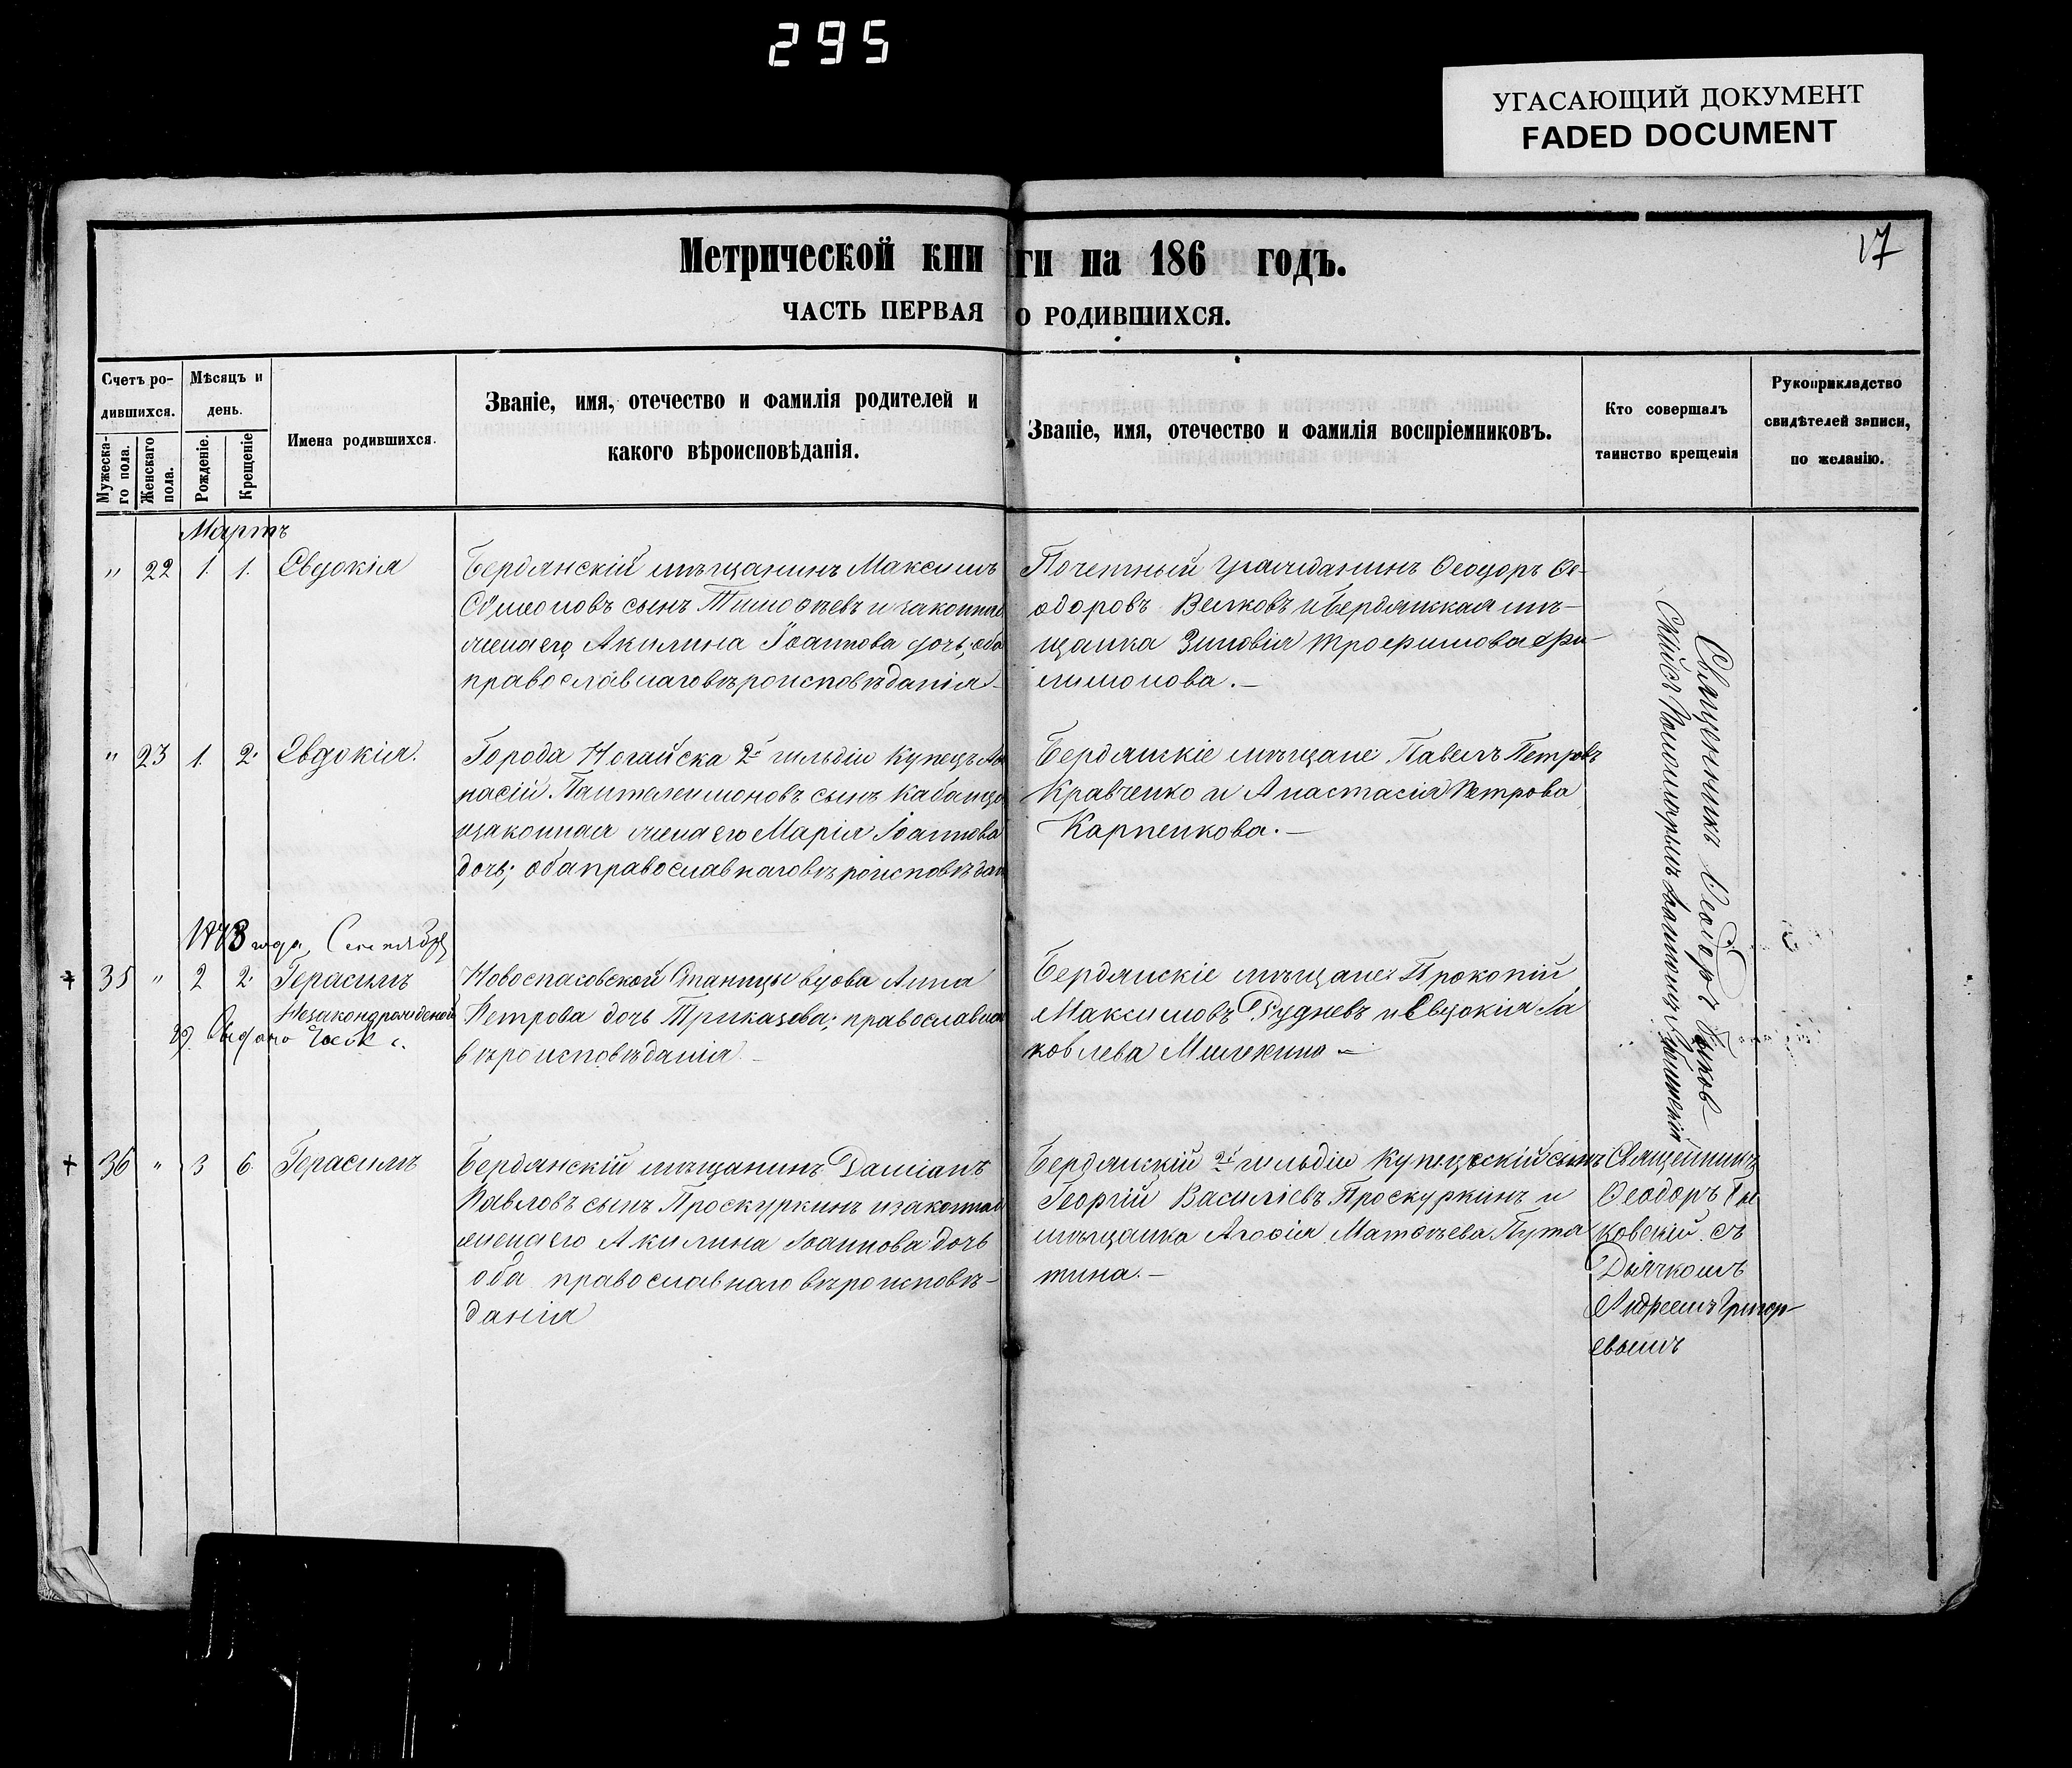 295
УГАСАЮЩИЙ ДОКУМЕНТ
FADED DOCUMENT
17
Метрической книги на 186 годъ.
ЧАСТЬ ПЕРВАЯ О РОДИВШИХСЯ.
Счетъ родившихся.
Мужескаго пола.
Женскаго пола.
Мѣсяцъ и день.
Рожденіе.
Крещеніе
Имена родившихся.
Званіе, имя, отечество и фамилія родителей и
какого вѣроисповѣданія.
Званіе, имя, отечество и фамилія воспріемниковъ.
Кто совершалъ
таинство крещенія
Рукоприкладство
свидѣтелей записи,
по желанію.
Мартъ
" 22 1. 1. Евдокія
Бердянскій мѣщанинъ Максимъ
сынъ Тимоѳѣевъ и законная
жена его Акилина Іоаннова дочь, оба
православнаго вѣроисповѣданія
Почетный Гражданинъ Ѳеодоръ Ѳе-
одоровъ Велковъ и Бердянская мѣ-
щанка Зиновія Трофимова Фи
лимонова. —
" 23 1. 2. Евдокія.
Города Ногайска 2й гильдіи Купецъ
насій Пантелеимоновъ сынъ
и законная жена его Марія Іоаннова
дочь; оба православнаго вѣроисповѣдан
Бердянскіе мѣщане: Павелъ Петровъ
Кравченко и Анастасія Петрова
Карпенкова. —
года, Сентября
35 " 2 2. Герасимъ
Незаконнорожденой
Выдано
Новоспасовской Станицы вдова Анна
Петрова дочь Приказова; православнаго
вѣроисповѣданія —
Бердянскіе мѣщане: Прокопій
Максимовъ Рудневъ и Евдокія Іа
ковлева
Священникъ Ѳеодоръ
36 " 3 6. Герасимъ
Бердянскій мѣщанинъ Даміанъ
Павловъ сынъ Проскуркинъ и законная
жена его Акилина Іоаннова дочь
оба православнаго вѣроисповѣ-
данія
Бердянскій 2й гильдіи Купеческій сынъ
Георгій Василіевъ Проскуркинъ и
мѣщанка Агафія Матѳѣева Пута
тина. —
Священникъ
Ѳеодоръ
ковскій съ
Дьячкомъ
Андреемъ Григор
евымъ